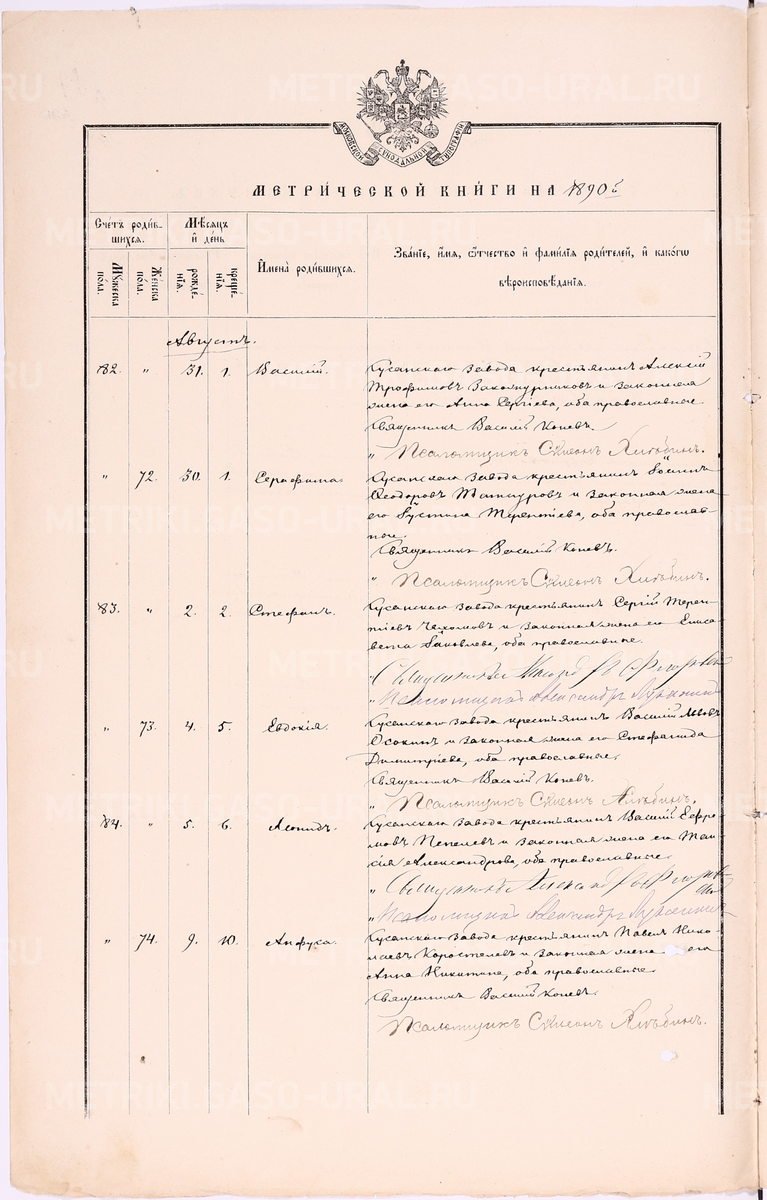 МЕТРИ́ЧЕСКОЙ КНИ́ГИ НА 1890 г.
Сче́тъ роди́в-
шихся.
Мѣ́сяцъ
и де́нь
Му́жеска
по́ла.
Же́нска
по́ла.
рожде́-
нїя.
креще́-
нїя.
И҆мена̀ роди́вшихся.
Зва́нїе, и҆́мя, ѻ҆́тчество и҆ фами́лїя роди́телей, и҆ како́гѡ
вѣроисповѣ́данїя.
Августъ.
82. " 31. 1. Василій. Кусинскаго завода крестьянинъ Алексій
Трофимовъ и законная
жена его Анна Сергіева, оба православные.
Священникъ Василій Коневъ.
" Псаломщикъ Симеонъ Хлѣбинъ.
" 72. 30. 1. Серафима. Кусинскаго завода крестьянинъ
Ѳеодоровъ и законная жена
его Іустина Терентіева, оба православ-
ные.
Священникъ Василій Коневъ.
" Псаломщикъ Симеонъ Хлѣбинъ.
83. " 2. 2. Стефанъ. Кусинскаго завода крестьянинъ Сергій Терен-
тіевъ и законная жена его Елиса-
вета Іаковлева, оба православные.
" Псаломщикъ Александръ
" 73. 4. 5. Евдокія. Кусинскаго завода крестьянинъ Василій Львовъ
Осокинъ и законная жена его Стефанида
Димитріева, оба православные.
Священникъ Василій Коневъ.
" Псаломщикъ Симеонъ Хлѣбинъ.
84. " 5. 6. Леонидъ. Кусинскаго завода крестьянинъ Василій Ефре-
мовъ Пепелевъ и законная жена его Таи-
сія Александрова, оба православные.
" Священникъ Александръ
" Псаломщикъ Александръ
" 74. 9. 10. Анфуса. Кусинскаго завода крестьянинъ Павелъ Нико-
лаевъ Коростелевъ и законная жена его
Анна Никитина, оба православные.
Священникъ Василій Коневъ.
Псаломщикъ Симеонъ Хлѣбинъ.
METRIKI.GASO-URAL.RU